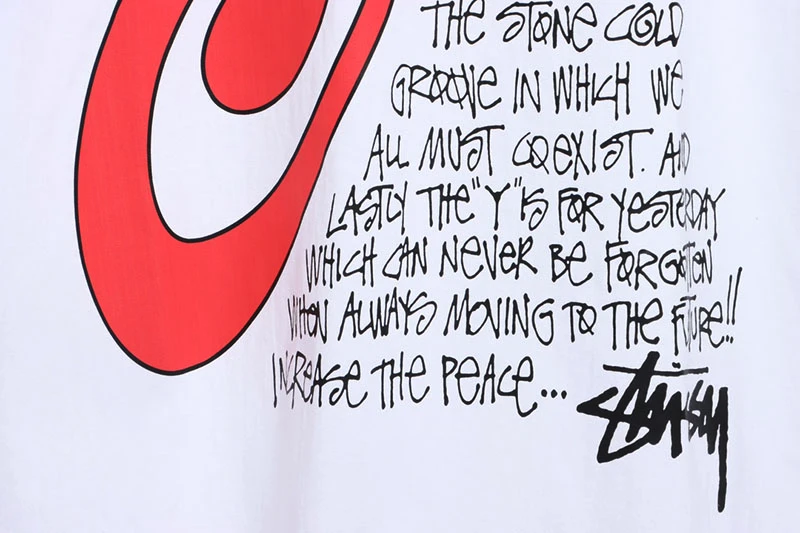 THE STONE COLD
GROOVE IN WHICH WE
ALL MUST COEXIST. AND
LASTLY THE "Y" IS FOR YESTERDAY
WHICH CAN NEVER BE FORGOTTEN
WHEN ALWAYS MOVING TO THE FUTURE!!
INCREASE THE PEACE...
STÜSSY